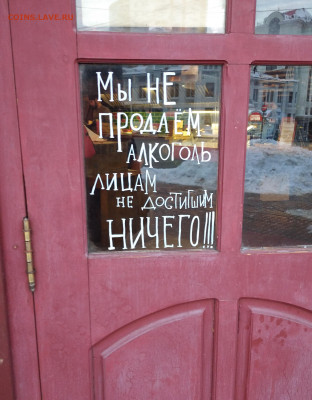 COINS.LAVE.RU
Мы НЕ
ПРОДАЁМ
АЛКОГОЛЬ
ЛИЦАМ
НЕ ДОСТИГШИМ
НИЧЕГО!!!